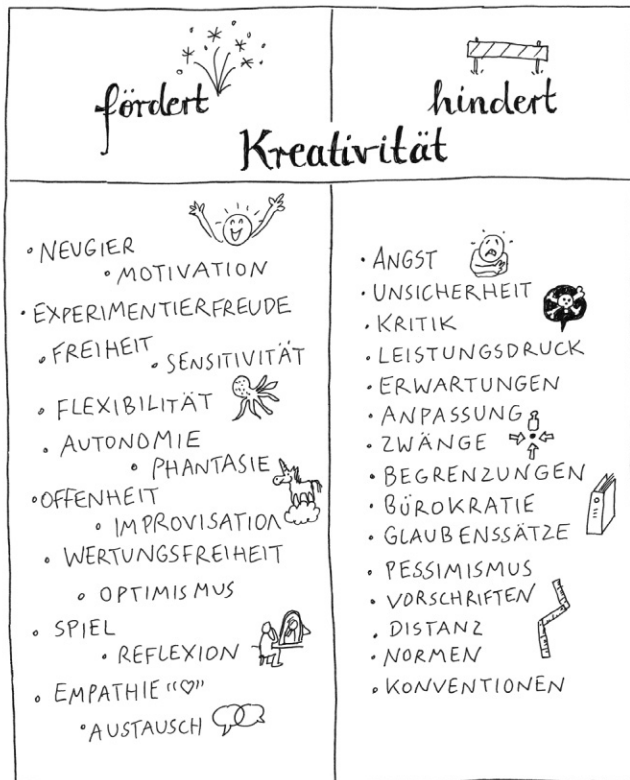 fördert
hindert
Kreativität
• NEUGIER
• MOTIVATION
• EXPERIMENTIERFREUDE
• FREIHEIT
• SENSITIVITÄT
• FLEXIBILITÄT
• AUTONOMIE
• PHANTASIE
• OFFENHEIT
• IMPROVISATION
• WERTUNGSFREIHEIT
• OPTIMISMUS
• SPIEL
• REFLEXION
• EMPATHIE "♡"
• AUSTAUSCH
• ANGST
• UNSICHERHEIT
• KRITIK
• LEISTUNGSDRUCK
• ERWARTUNGEN
• ANPASSUNG
• ZWÄNGE
• BEGRENZUNGEN
• BÜROKRATIE
• GLAUBENSSÄTZE
• PESSIMISMUS
• VORSCHRIFTEN
• DISTANZ
• NORMEN
• KONVENTIONEN